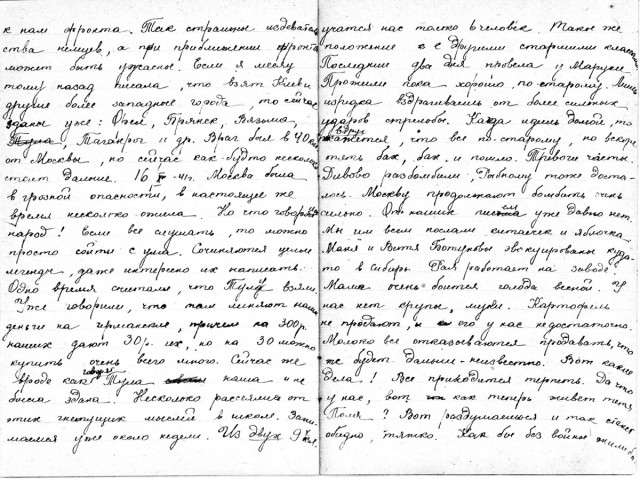 к нам фронта. Так страшны издеватель
ства немцев, а при приближении фронта
может быть ужасны. Если я месяц
тому назад писала, что взят Киев и
другие более западные города, то сейчас
сданы уже: Орёл, Брянск, Вязьма,
Тула, Таганрог и др. Враг был в 40 км
от Москвы, но сейчас как-будто несколько
стоит дальше. 16 X - 41г. Москва была
в грозной опасности, в настоящее же
время несколько отошла. Но что говорит
народ! Если все слушать, то можно
просто сойти с ума. Сочиняются целые
легенды, даже интересно их написать.
Одно время считали, что Тулу взяли.
Уже говорили, что там меняют наши
деньги на германские, причем на 300р.
наших дают 30 р. их, но на 30 можно
купить очень всего много. Сейчас же
вроде как говорят Тула наша и не
была сдана. Несколько рассеялись от
этих гнетущих мыслей в школе. Зани
маемся уже около недели. Из двух 9 кл.
учатся нас только 6 человек. Такое же
положение и с другими старшими классами
Последние два дня провела у Маруси.
Прожили пока хорошо, по-старому. Лишь
изредка вздрагивались от более сильных
ударов отрелобы. Когда идешь домой, то
кажется, что все по-старому, но вскоре вдруг
опять бах, бах и пошло. Тревоги часты.
Дивово разбомбили, Рыбному тоже доста-
лось. Москву продолжают бомбить очень
сильно. От наших писем уже давно нет.
Мы им всем послали китайск и яблочка.
Маня и Витя Ботуновы эвакуированы куда-
то в Сибирь. Рая работает на заводе.
Маша очень боится голода весной. У
нас нет крупы, муки. Картофель
не продают, и его у нас недостаточно.
Молоко все отказываются продавать, что
же будет дальше - неизвестно. Вот какие
дела! Все приходится терпеть. Да что
у нас, вот как теперь живет тетя
Поля? Вот раздумаешься и так станет
обидно, тяжко. Как бы без войны жили бы.